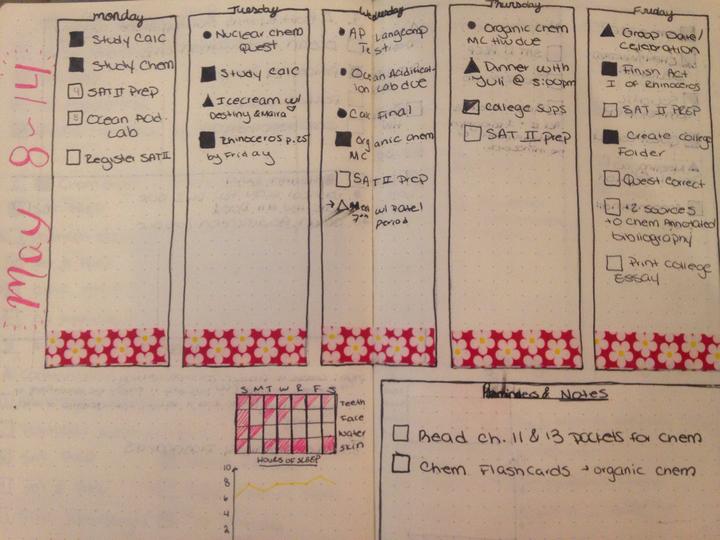 May 8-14
Monday
Study Calc
Study Chem
SAT II Prep
Ocean Acid.
Lab
Register SAT II
Tuesday
Nuclear chem
Quest
Study Calc
Icecream w/
Destiny & Maira
Rhinoceros p. 25
by Friday
Wednesday
AP Lang comp
Test
Ocean Acidificat-
ion Lab due
Calc Final
Organic chem
MC
SAT II Prep
w/
period
Thursday
Organic chem
MC HW due
Dinner with
Yuli @ 5:00pm
College Sups
SAT II Prep
Friday
Group Date/
Celebration
Finish Act
I of Rhinoceros
SAT II PREP
Create college
Folder
Quest Correct
+2 sources
to Chem Annotated
bibliography
Print College
Essay
S M T W R F S
Teeth
Face
Water
Skin
HOURS OF SLEEP
10
8
6
4
2
Reminders & Notes
Read ch. 11 & 13 pockets for chem
Chem Flashcards → organic chem